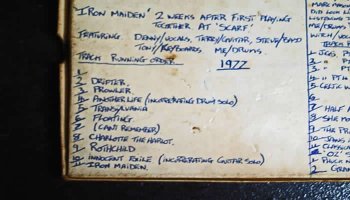 'IRON MAIDEN' 2 WEEKS AFTER FIRST PLAYING
TOGETHER AT 'SCARF'.
FEATURING DENNY/VOCALS, TERRY/GUITAR STEVE/BASS
TONY/KEYBOARDS ME/DRUMS
TRACK RUNNING ORDER... 1977
1
2 DRIFTER
3 PROWLER
4 ANOTHER LIFE (INCORPERATING DRUM SOLO)
5 TRANSYLVANIA
6 FLOATING
7 (CAN'T REMEMBER)
8 CHARLOTTE THE HARLOT.
9 ROTHCHILD
10 INNOCENT EXILE (INCORPERATING GUITAR SOLO)
IRON MAIDEN.
MARC
DID LOOK
LISTENING T
ME/DRUMS
WITCH/VOC
TRACK
1 JIGS, PT
2 " PT
3 " PTH
4 " PTH
5 CELTIC
6
7 HALF A
8 SHE MO
9 THE PR
10 JAWS
11 CLASSIC
12 'OZ'